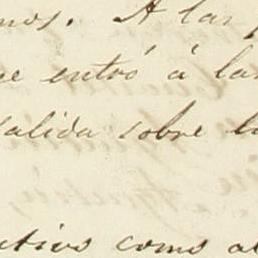 mos. A las
entró á la
salida sobre l
ativo como a